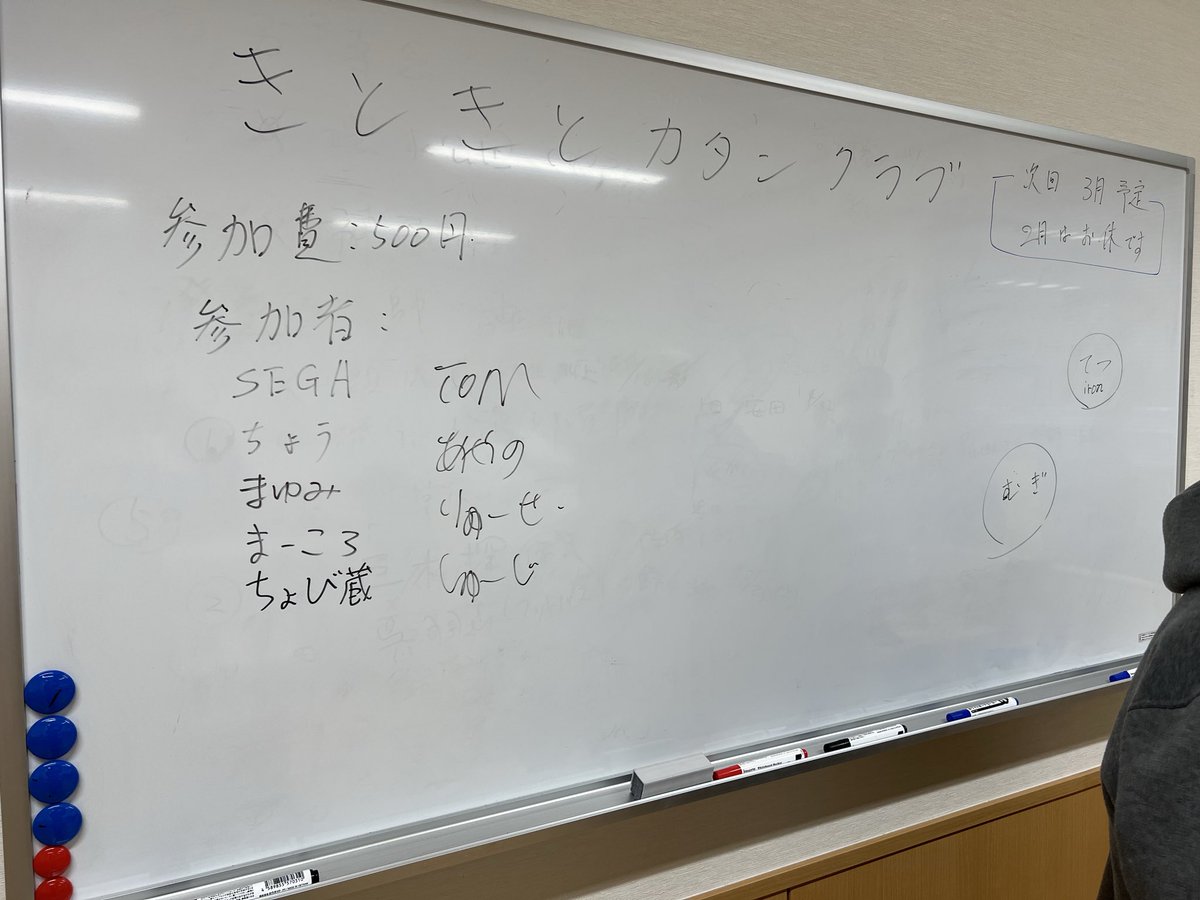 きときとカタンクラブ
次回 3月予定
2月はお休です
参加費：500円.
参加者：
SEGA
ちょう
まゆみ
まーころ
ちょび蔵
TOM
あやの
りゅーせー
しゅーじ
てつ
iron
むぎ